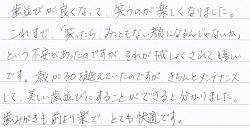 歯並びが良くなって、笑うのが楽しくなりました。
これまで、「笑ったら、みともない顔になるんじゃないか」
という不安があったのですが、それが減しょくされて嬉しい
です。歳が30越えていたのですが、きちんとメンテナンス
して、美しい歯並びにすることができると分かりました。
歯みがきも前より楽で、とても快適です。